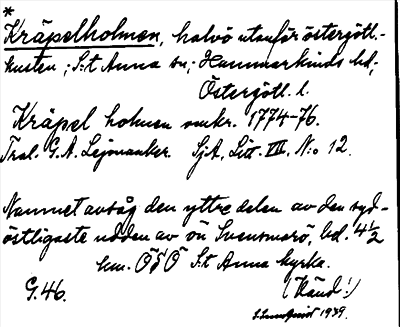 *
Kräpelholmen, halvö utanför östergötl.-
kusten; S:t Anna sn; Hammarkinds hd;
Östergötl. l.
Kräpel holmen omkr. 1774-76.
Tral. G.A. Lejonanker. SjA, Litt. VIII, N:o 12.
Namnet avsåg den yttre delen av den syd-
östligaste udden av ön Svensmarö, bel. 4½
km. ÖSÖ S:t Anna kyrka.
G.46. (Känd!)
S. Lundqvist 1939.